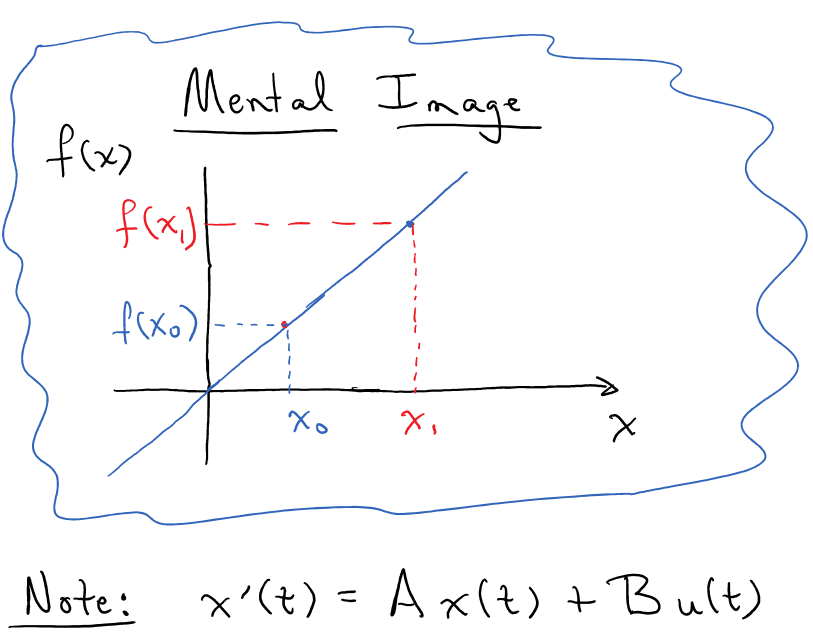 Mental Image
f(x)
f(x₁)
f(x₀)
x₀ x₁ x
Note: x'(t) = A x(t) + B u(t)